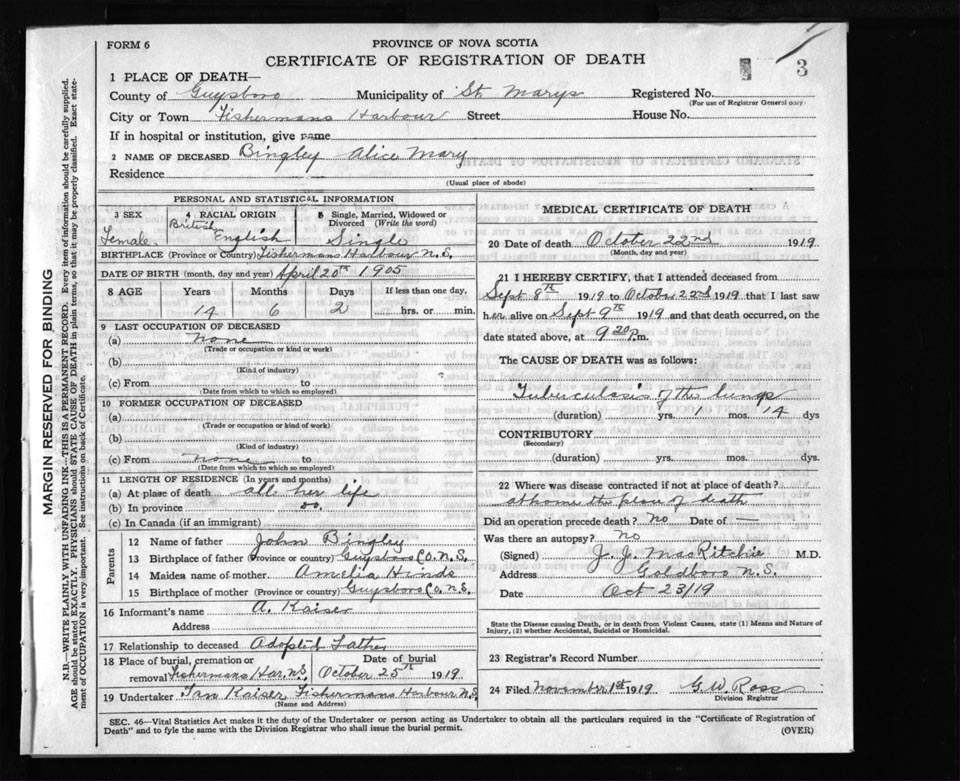 FORM 6
PROVINCE OF NOVA SCOTIA
CERTIFICATE OF REGISTRATION OF DEATH
3
1 PLACE OF DEATH—
County of Guysboro Municipality of St. Marys Registered No.
(For use of Registrar General only)
City or Town Fishermans Harbour Street House No.
If in hospital or institution, give name
2 NAME OF DECEASED Bingley Alice Mary
Residence
(Usual place of abode)
PERSONAL AND STATISTICAL INFORMATION
3 SEX Female.
4 RACIAL ORIGIN British English
5 Single, Married, Widowed or Divorced (Write the word) Single
BIRTHPLACE (Province or Country) Fishermans Harbour N.S.
DATE OF BIRTH (month, day and year) April 20th 1905
8 AGE Years Months Days If less than one day,
14 6 2 hrs. or min.
9 LAST OCCUPATION OF DECEASED
(a) none
(Trade or occupation or kind or work)
(b)
(Kind of industry)
(c) From to
(Date from which to which so employed)
10 FORMER OCCUPATION OF DECEASED
(a)
(Trade or occupation or kind of work)
(b)
(Kind of industry)
(c) From none to
(Date from which to which so employed)
11 LENGTH OF RESIDENCE (In years and months)
(a) At place of death all her life
(b) In province do.
(c) In Canada (if an immigrant)
Parents
12 Name of father John Bingley
13 Birthplace of father (Province or country) Guysboro Co. N.S.
14 Maiden name of mother Amelia Hinds
15 Birthplace of mother (Province or country) Guysboro Co. N.S.
16 Informant's name A. Kaiser
Address
17 Relationship to deceased Adopted Father
18 Place of burial, cremation or removal Fishermans Har. N.S. Date of burial October 25th 1919
19 Undertaker Ian Kaiser Fishermans Harbour N.S.
(Name and Address)
MEDICAL CERTIFICATE OF DEATH
20 Date of death October 22nd 1919
(Month, day and year)
21 I HEREBY CERTIFY, that I attended deceased from
Sept 8th 1919 to October 22nd 1919 that I last saw
her alive on Sept 9th 1919 and that death occurred, on the
date stated above, at 9 20 P.m.
The CAUSE OF DEATH was as follows:
Tuberculosis of the lungs
(duration) yrs. 1 mos. 14 dys
CONTRIBUTORY
(Secondary)
(duration) yrs. mos. dys.
22 Where was disease contracted if not at place of death?
at home the place of death
Did an operation precede death? No Date of —
Was there an autopsy? No
(Signed) J. J. MacRitchie M.D.
Address Goldboro N.S.
Date Oct 23/19
State the Disease causing Death, or in death from Violent Causes, state (1) Means and Nature of
Injury, (2) whether Accidental, Suicidal or Homicidal.
23 Registrar's Record Number
24 Filed November 1st 1919 G.W. Ross
Division Registrar
SEC. 46—Vital Statistics Act makes it the duty of the Undertaker or person acting as Undertaker to obtain all the particulars required in the "Certificate of Registration of
Death" and to fyle the same with the Division Registrar who shall issue the burial permit.
(OVER)
MARGIN RESERVED FOR BINDING
N.B.—WRITE PLAINLY WITH UNFADING INK—THIS IS A PERMANENT RECORD. Every item of information should be carefully supplied.
AGE should be stated EXACTLY. PHYSICIANS should STATE CAUSE OF DEATH in plain terms, so that it may be properly classified. Exact state-
ment of OCCUPATION is very important. See instructions on back of Certificate.